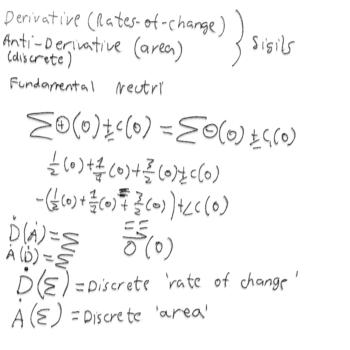 Derivative (Rates-of-change) } Sigils
Anti-Derivative (area)
(discrete)
Fundamental Neutri
∑⊕(0)±c(0) = ∑⊖(0)±c,(0)
1/2(0)+1/4(0)+3/2(0)±c(0)
-(1/2(0)+1/4(0)+3/2(0))+∠c(0)
Ḋ(Ȧ)=∑
Ȧ(Ḋ)=∑
Ō(0)
Ḋ(∑)=Discrete 'rate of change'
Ȧ(∑)=Discrete 'area'